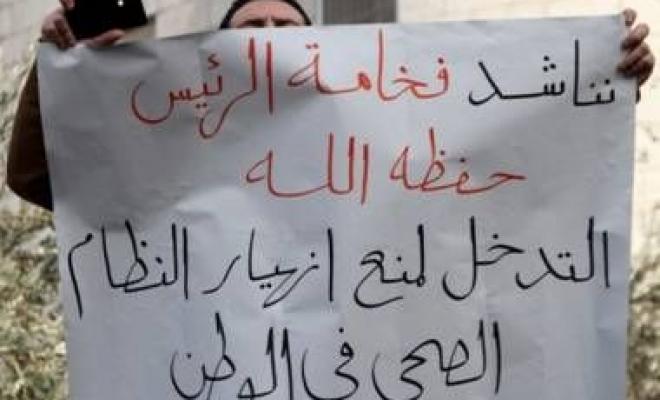 نناشد فخامة الرئيس
حفظه الله
التدخل لمنع انهيار النظام
الصحي في الوطن